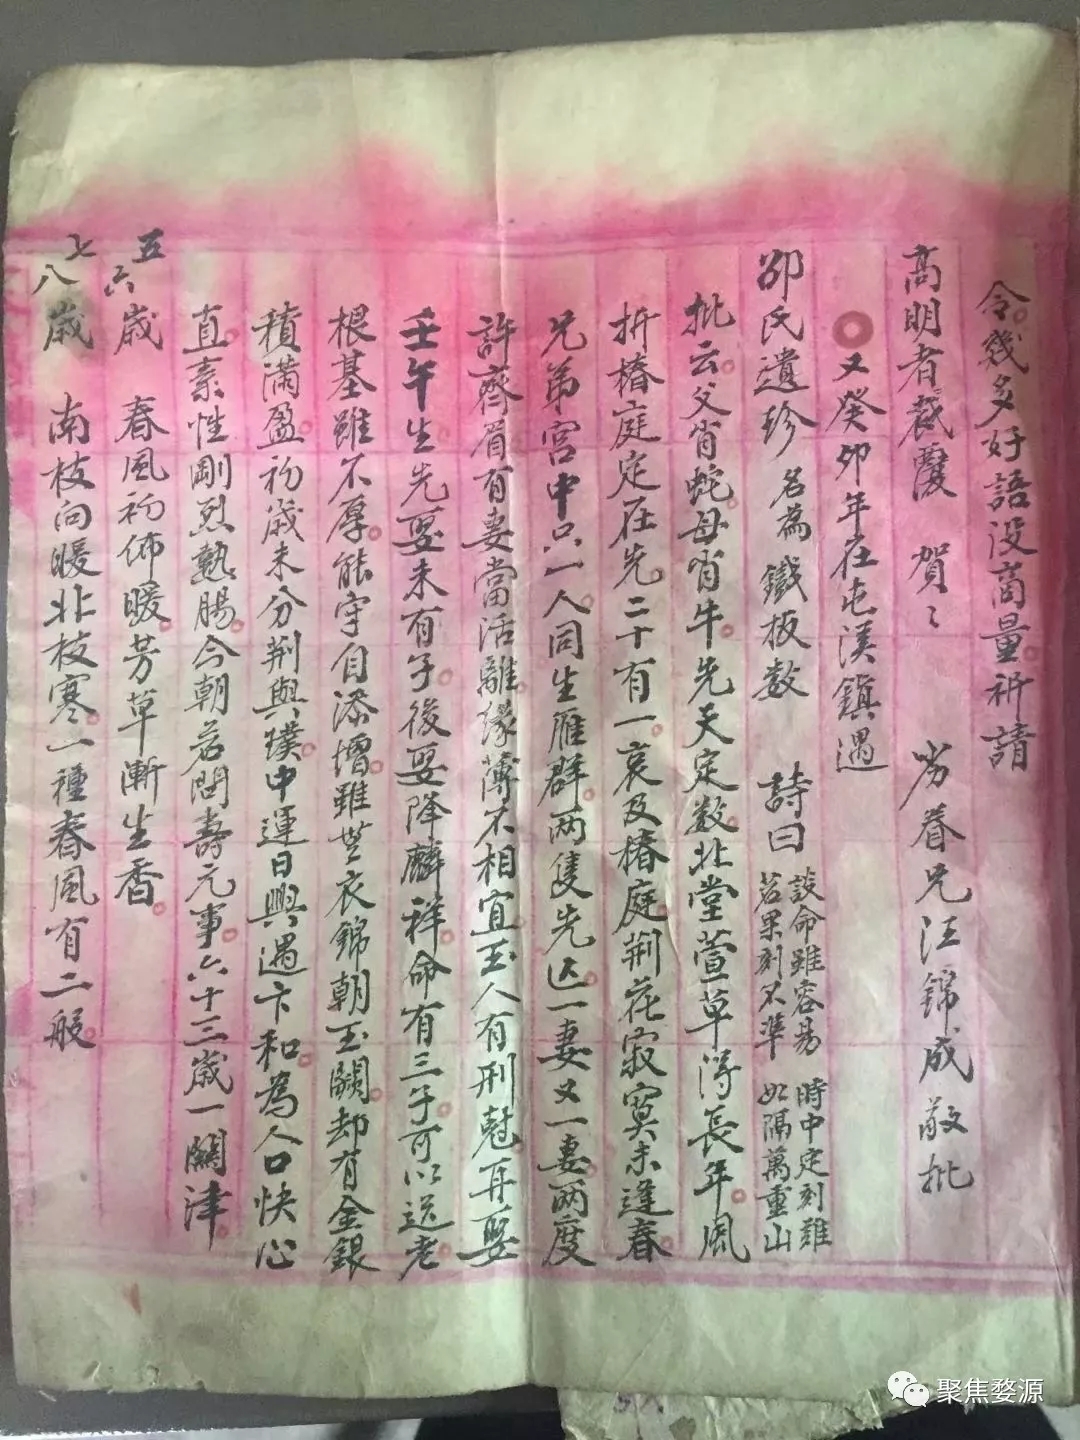 令幾多好語没商量祈請
高明者裁覆 賀〻 劣眷兄汪錦成敬批
又癸卯年在屯溪鎮遇
邵氏遺珍 名為鐵板数 詩曰 談命雖容易 時中定刻難
若果刻不準 如隔萬重山
批云父肖蛇母肖牛先天定数北堂萱草得長年風
折椿庭定在先二十有一哀及椿庭荆花寂寞未逢春
兄弟宮中只一人同生雁群两隻先亾一妻又一妻两度
許齊眉有妻當活離緣薄不相宜玉人有刑尅再娶
壬午生先娶未有子後娶降麟祥命有三子可以送老
根基雖不厚能守自添增雖無衣錦朝玉闕却有金銀
積滿盈初歲未分荆與璞中運日興遇卞和為人口快心
直素性剛烈熱腸今朝若問壽元事六十三歲一關津
五六歲 春風初佈暖芳草漸生香
七八歲 南枝向暖北枝寒一種春風有二般
聚焦婺源